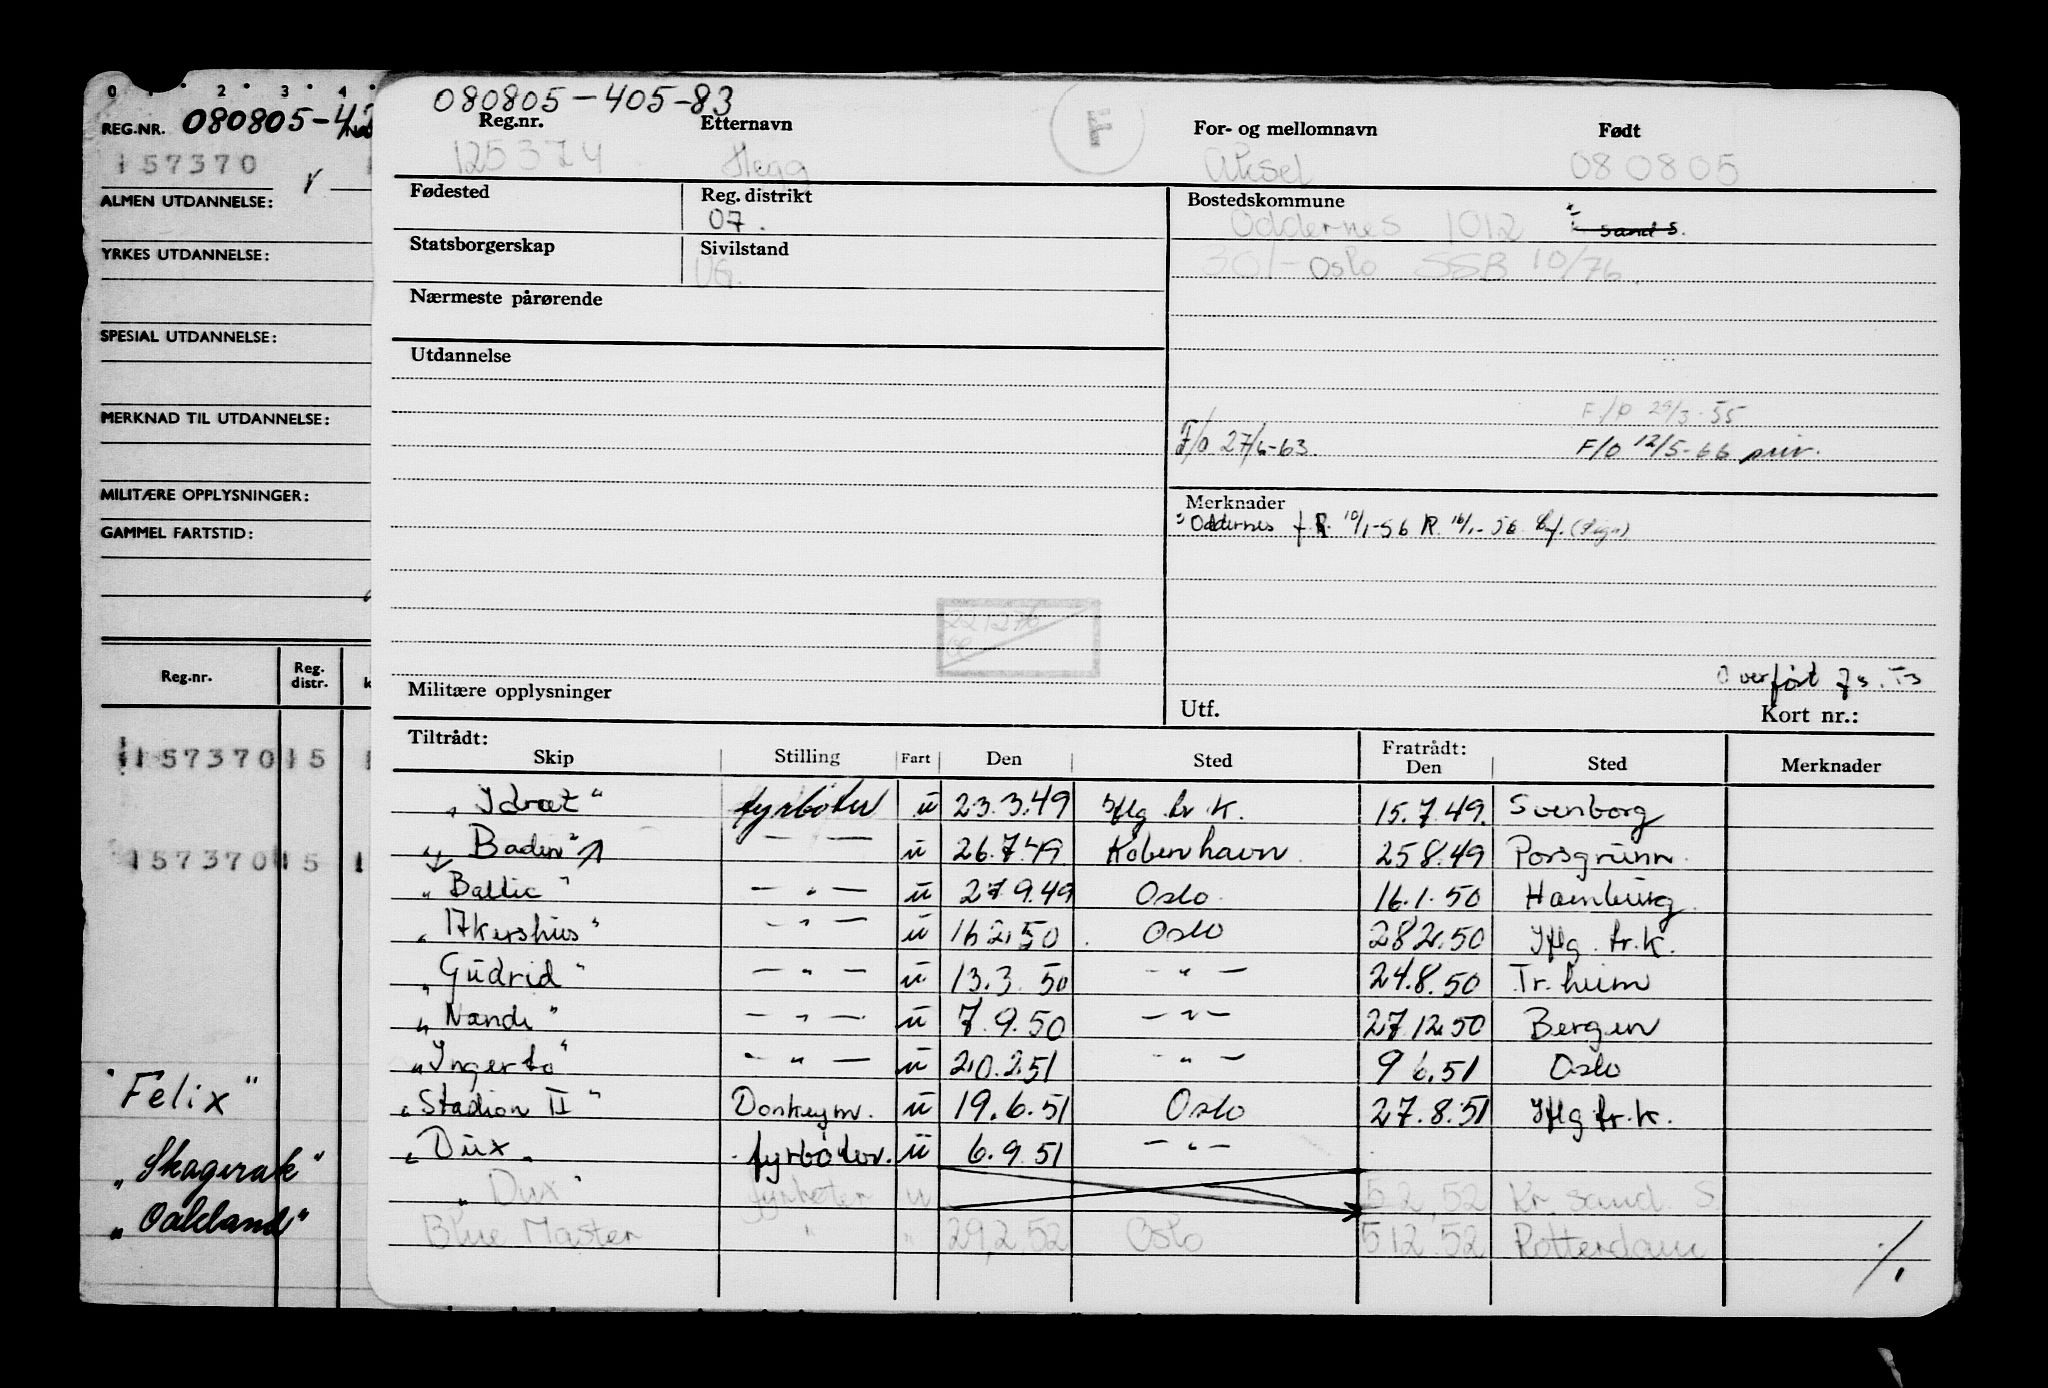 0 1 2 3 4
REG.NR. 080805-42
157370
ALMEN UTDANNELSE:
YRKES UTDANNELSE:
SPESIAL UTDANNELSE:
MERKNAD TIL UTDANNELSE:
MILITÆRE OPPLYSNINGER:
GAMMEL FARTSTID:
Reg.nr. Reg. distr.
157370 15
157370 15
"Felix"
"Skagerak"
"Oakland"
080805-405-83
Reg.nr. Etternavn F For- og mellomnavn Født
125374 Hegg Aksel 080805
Fødested Reg. distrikt Bostedskommune
07. Oddernes 1012 sand S.
Statsborgerskap Sivilstand
UG. 301- Oslo SSB 10/76
Nærmeste pårørende
Utdannelse
F/O 29/3-55
F/O 27/6-63. F/O 12/5-66 priv.
Merknader
Oddernes f R. 10/1-56 R. 16/1-56
Overført
Militære opplysninger Utf. Kort nr.:
Tiltrådt: Fratrådt:
Skip Stilling Fart Den Sted Den Sted Merknader
"Idræt" fyrbøter u 23.3.49 Iflg. br. K. 15.7.49. Svenborg
"Baden" — — u 26.7.49 København 25 8.49 Porsgrunn.
"Baltic" — " — u 27.9.49 Oslo. 16.1.50 Hamburg.
"Akershus" — " — u 16 2.50 Oslo 28 2.50 Iflg. br. K.
"Gudrid" — " — u 13.3 50 — " — 24.8.50 Tr.heim
"Nandi" — " — u 7.9.50 — " — 27 12.50 Bergen
"Ingerto" — " — u 20.2.51 — " — 9 6.51 Oslo
"Stadion II" Donkeym. u 19.6.51 Oslo 27.8.51 Iflg br. K.
"Dux" fyrbøter. u 6.9.51 — " —
"Dux" fyrbøter u 5 2.52 Kr. sand. S
Blue Master " " 29.2 52 Oslo 5 12 52 Rotterdam